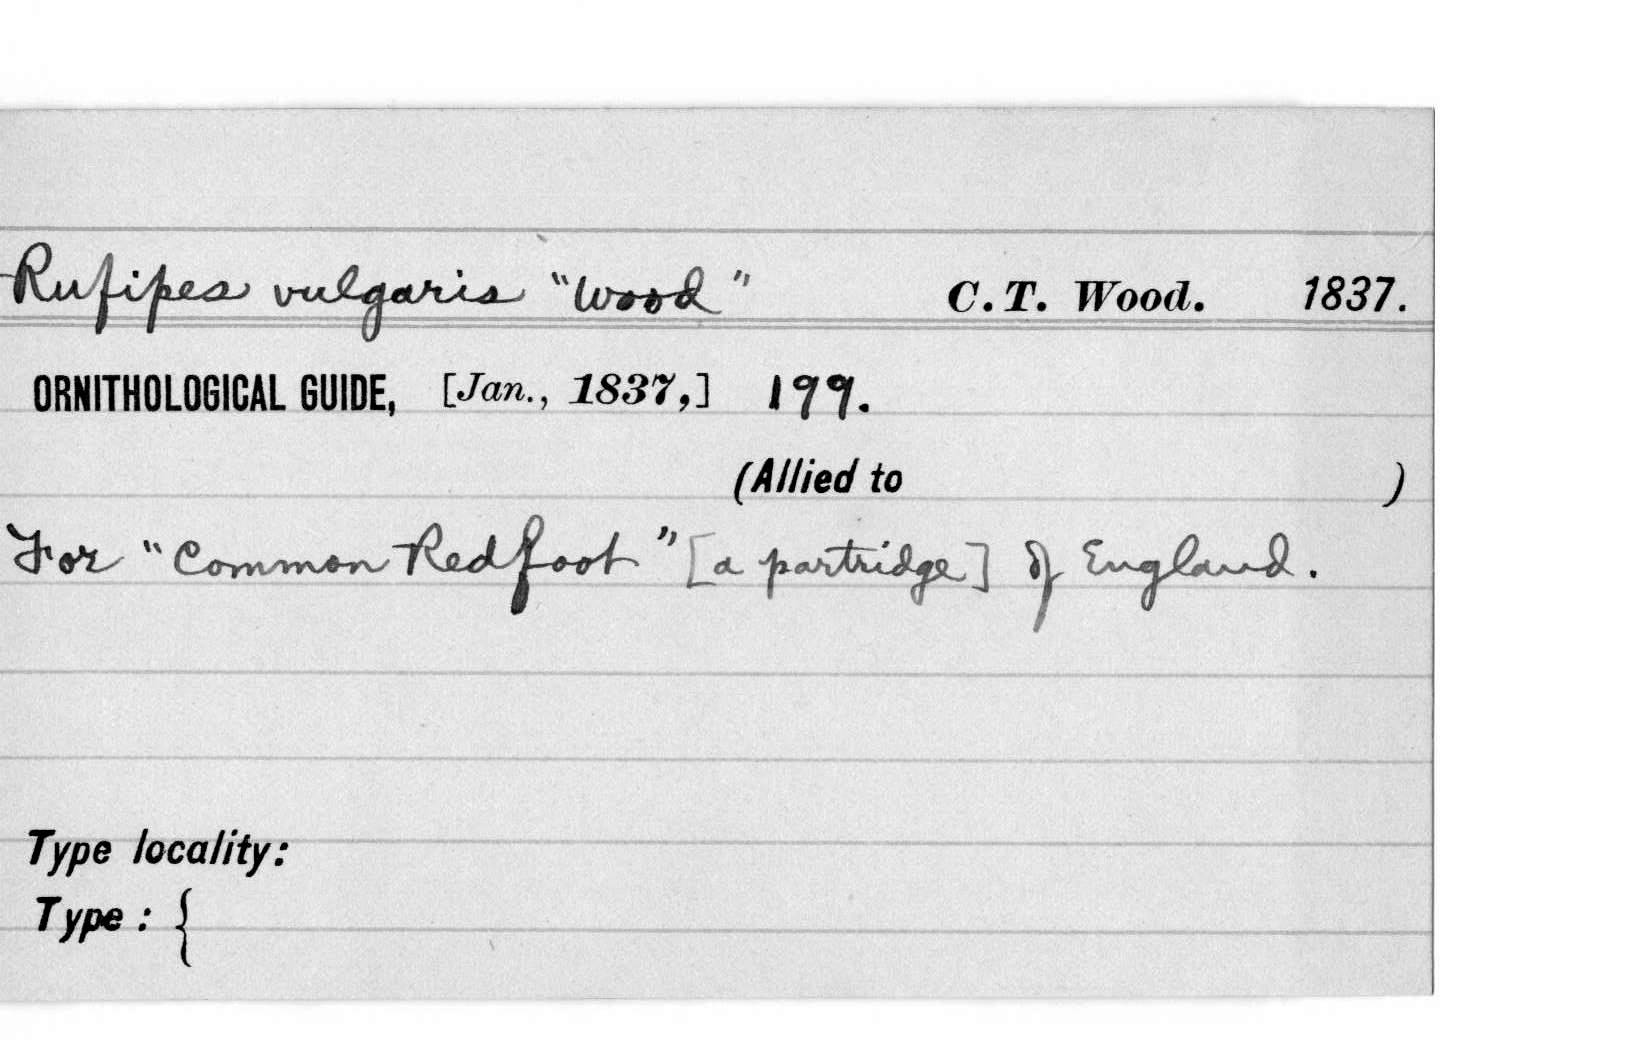 Rufipes vulgaris "Wood" C.T. Wood. 1837.
ORNITHOLOGICAL GUIDE, [Jan., 1837,] 199.
(Allied to )
For "Common Redfoot" [a partridge] of England.
Type locality:
Type: {